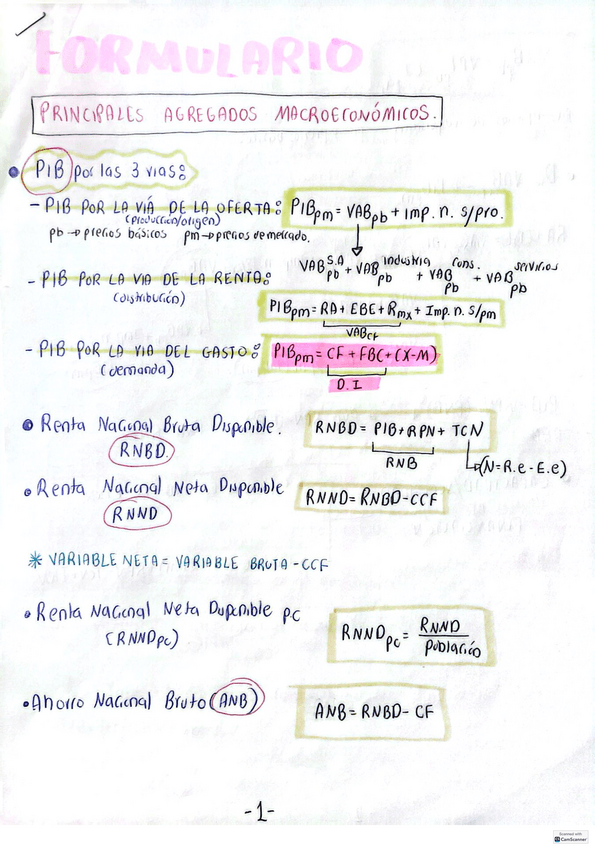 FORMULARIO
PRINCIPALES AGREGADOS MACROECONÓMICOS.
PIB por las 3 vias:
- PIB POR LA VIÁ DE LA OFERTA: PIBpm = VABpb + imp. n. s/pro.
(producción/origen)
pb → precios básicos pm → precios de mercado.
VABpb S.A + VABpb industria + VABpb cons. + VABpb servicios
- PIB POR LA VIA DE LA RENTA:
(distribución)
PIBpm = RA + EBE + Rmx + Imp. n. s/pm
VABcf
- PIB POR LA VIA DEL GASTO: PIBpm = CF + FBC + (X-M)
(demanda)
D.I
Renta Nacional Bruta Disponible. RNBD = PIB + RPN + TCN
RNBD.
RNB
(N = R.e - E.e)
Renta Nacional Neta Disponible
RNND
RNND = RNBD - CCF
* VARIABLE NETA = VARIABLE BRUTA - CCF
• Renta Nacional Neta Disponible pc
(RNNDpc)
RNNDpc = RNND / población
• Ahorro Nacional Bruto (ANB)
ANB = RNBD - CF
-1-
Scanned with
CamScanner